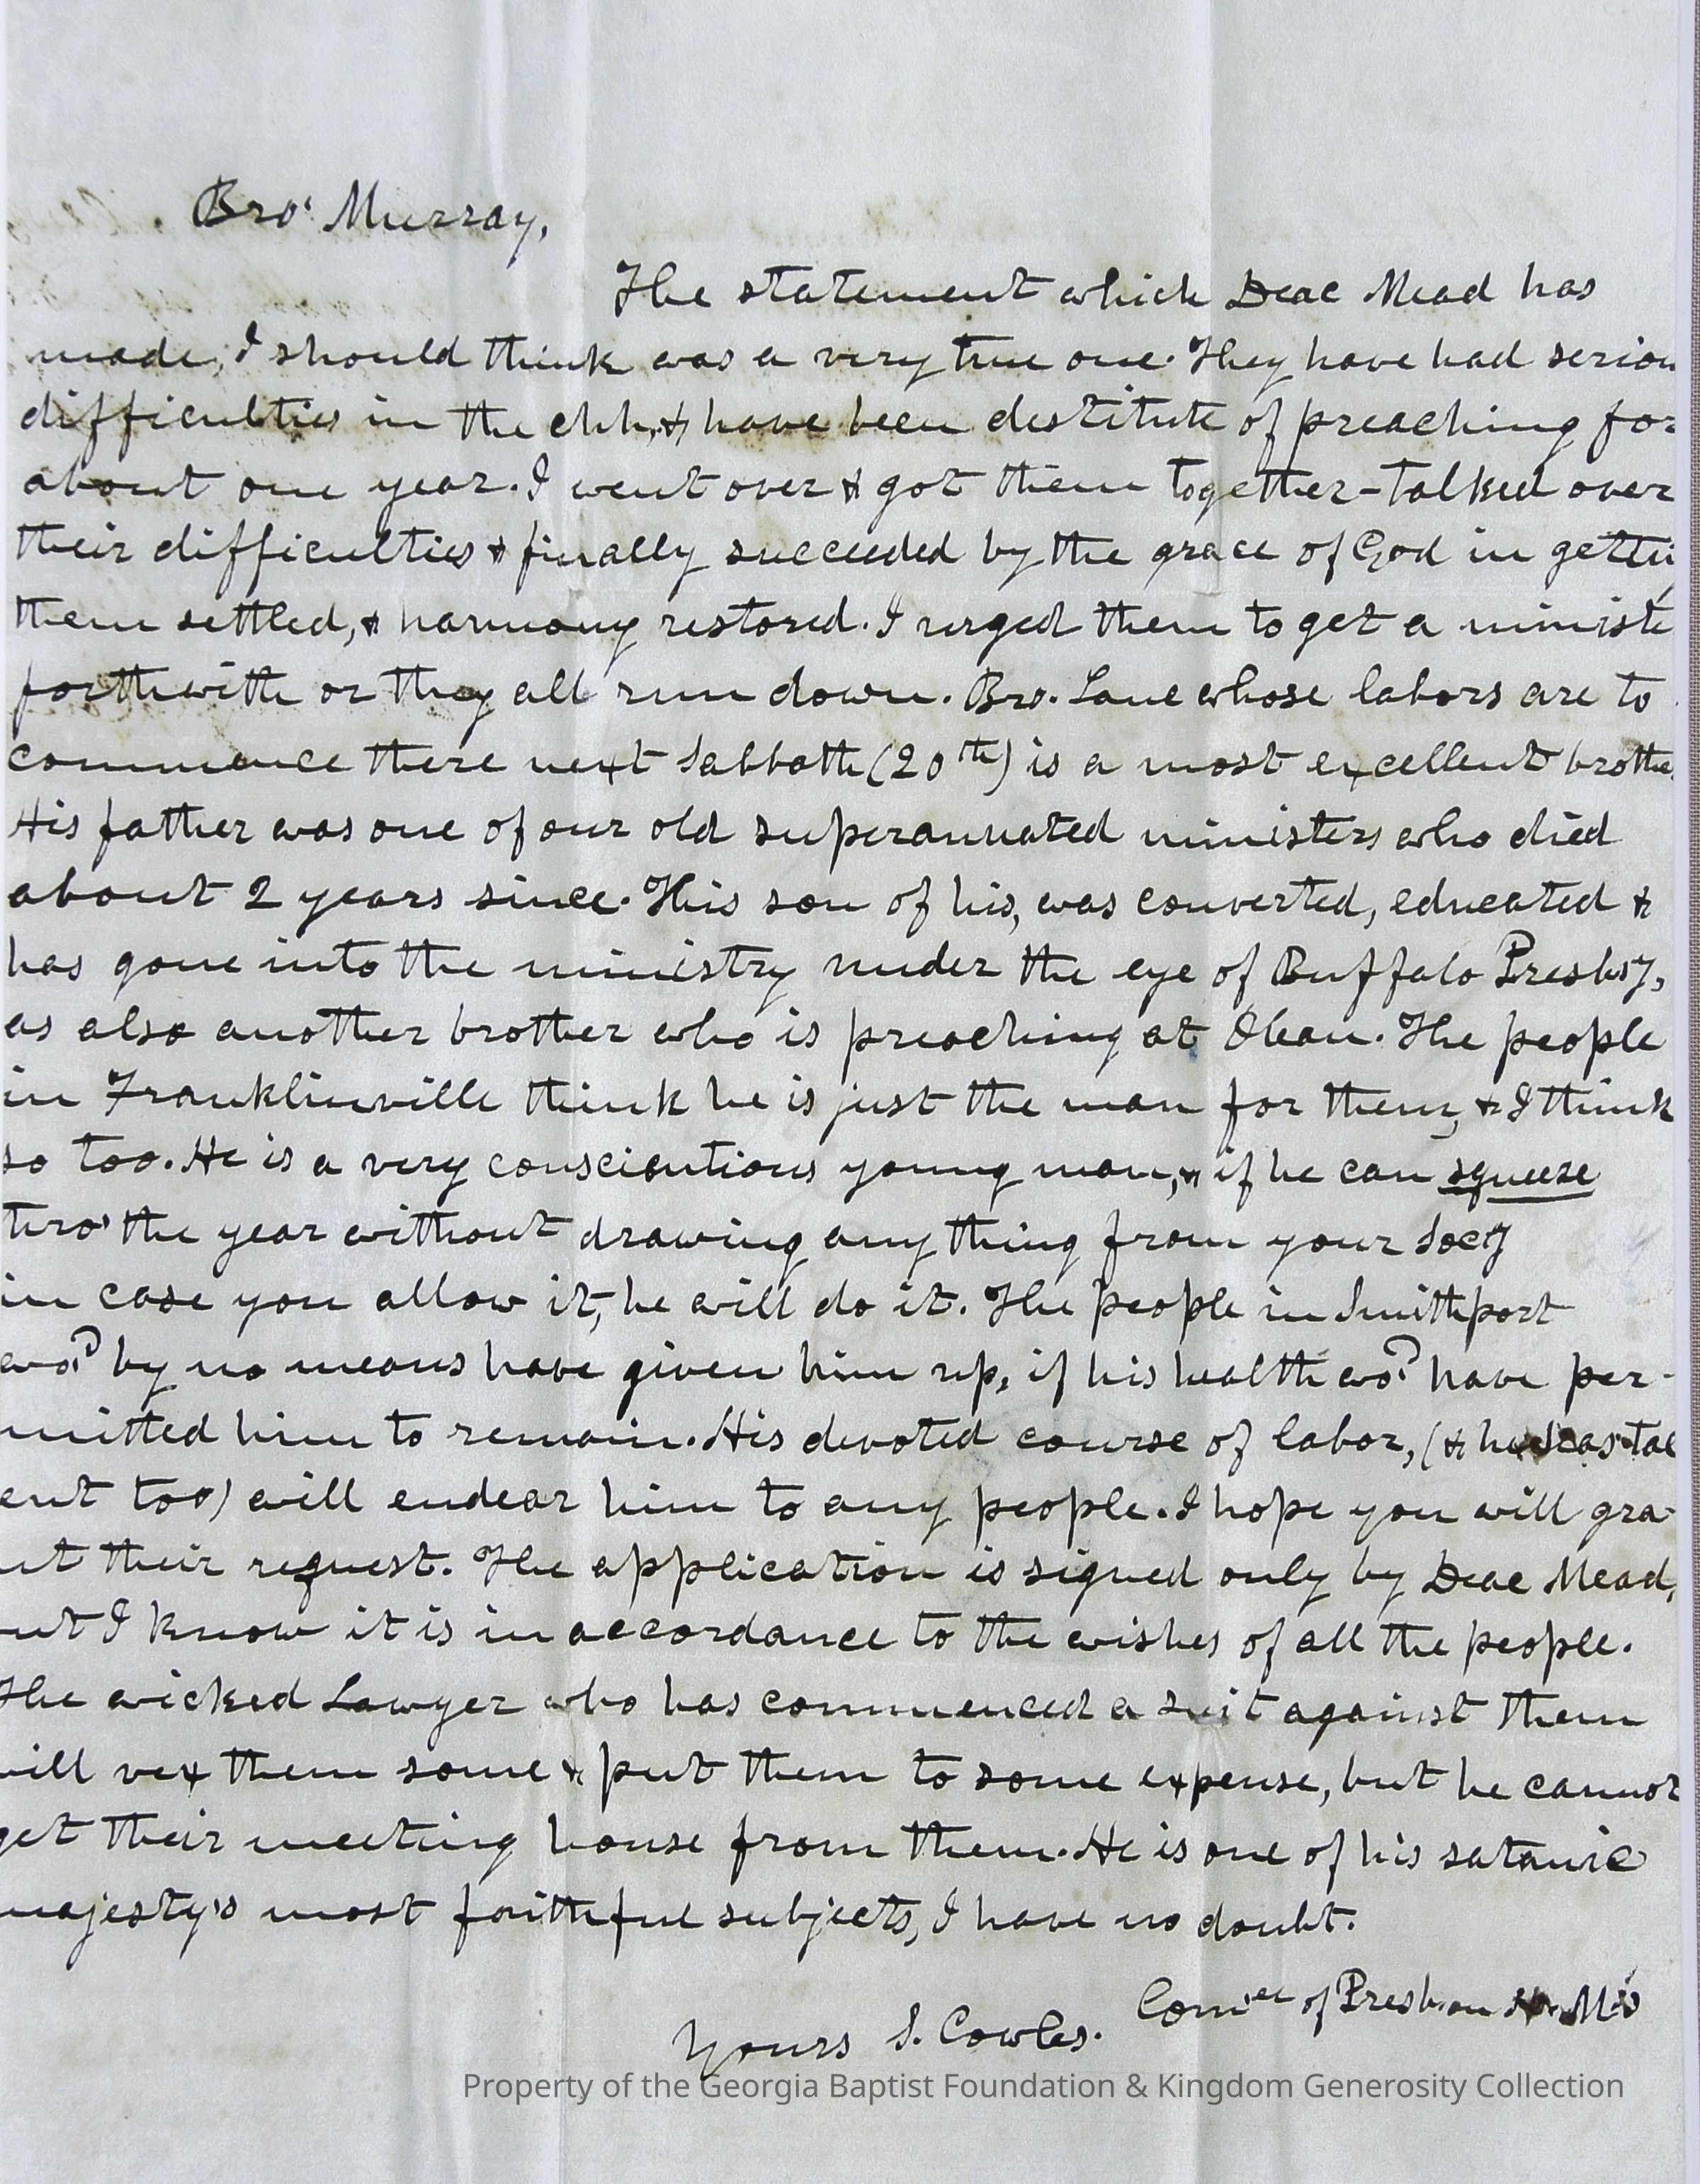 Bro' Murray,
The statement which Deac Mead has
made, I should think was a very true one. They have had seriou
difficulties in the chh, & have been destitute of preaching for
about one year. I went over & got them together-talked over
their difficulties & finally succeeded by the grace of God in getti
them settled, & harmony restored. I urged them to get a ministe
forthwith or they all run down. Bro. Lane whose labors are to
commence there next Sabbath (20th) is a most excellent brothe
His father was one of our old superannuated ministers who died
about 2 years since. This son of his, was converted, educated &
has gone into the ministry under the eye of Buffalo Presby,
as also another brother who is preaching at Olean. The people
in Franklinville think he is just the man for them, & I think
so too. He is a very conscientious young man, & if he can squeeze
thro' the year without drawing any thing from your Socy
in case you allow it, he will do it. The people in Smithport
wod by no means have given him up, if his health wod have per-
mitted him to remain. His devoted course of labor, (& he has tal
ent too) will endear him to any people. I hope you will gra-
nt their request. The application is signed only by Deac Mead,
ut I know it is in accordance to the wishes of all the people.
The wicked Lawyer who has commenced a suit against them
will vex them some & put them to some expense, but he cannot
get their meeting house from them. He is one of his satanic
majesty's most faithful subjects, I have no doubt.
Yours S. Cowles. Comee of Presb. on
Property of the Georgia Baptist Foundation & Kingdom Generosity Collection